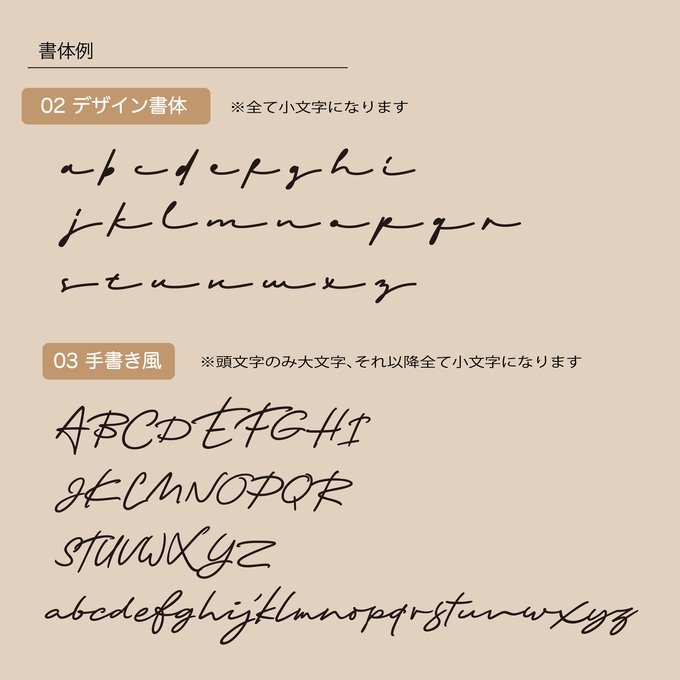 書体例
02 デザイン書体
※全て小文字になります
a b c d e f g h i
j k l m n o p q r
s t u v w x y z
03 手書き風
※頭文字のみ大文字、それ以降全て小文字になります
ABCDEFGHI
JKLMNOPQR
STUVWXYZ
abcdefghijklmnopqrstuvwxyz